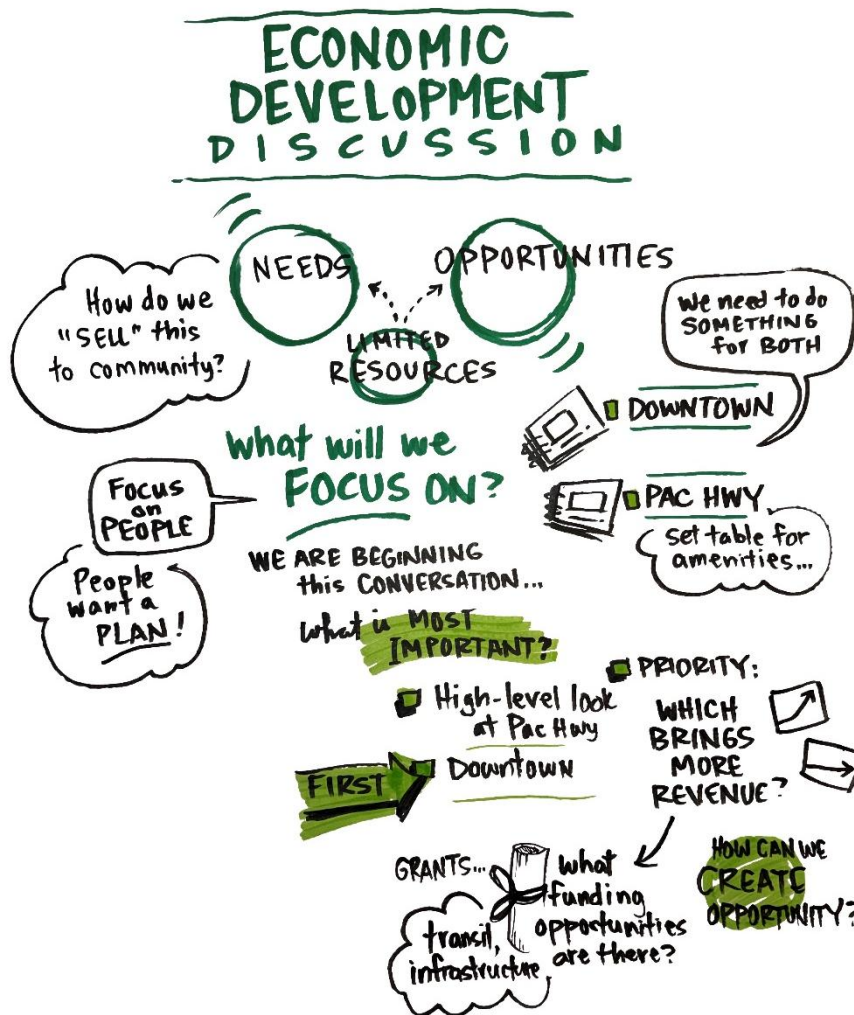 ECONOMIC
DEVELOPMENT
DISCUSSION
NEEDS
OPPORTUNITIES
LIMITED
RESOURCES
How do we
"SELL" this
to community?
We need to do
SOMETHING
for BOTH
DOWNTOWN
PAC HWY
set table for
amenities...
What will we
FOCUS ON?
FOCUS
on
PEOPLE
People
want a
PLAN!
WE ARE BEGINNING
this CONVERSATION...
What is MOST
IMPORTANT?
High-level look
at Pac Hwy
FIRST
Downtown
PRIORITY:
WHICH
BRINGS
MORE
REVENUE?
GRANTS...
transit,
infrastructure
what
funding
opportunities
are there?
HOW CAN WE
CREATE
OPPORTUNITY?